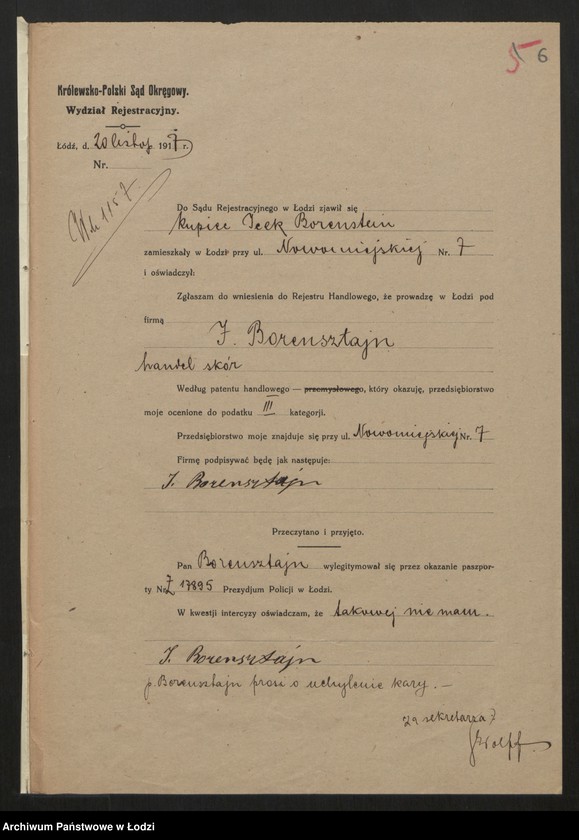 5 6
Królewsko-Polski Sąd Okręgowy.
Wydział Rejestracyjny.
Łódź, d. 20 listop. 1917 r.
Nr.
1157
Do Sądu Rejestracyjnego w Łodzi zjawił się
kupiec Icek Borenstein
zamieszkały w Łodzi przy ul. Nowomiejskiej Nr. 7
i oświadczył:
Zgłaszam do wniesienia do Rejestru Handlowego, że prowadzę w Łodzi pod
firmą
I. Borensztajn
handel skór
Według patentu handlowego — przemysłowego, który okazuję, przedsiębiorstwo
moje ocenione do podatku III kategorji.
Przedsiębiorstwo moje znajduje się przy ul. Nowomiejskiej Nr. 7
Firmę podpisywać będę jak następuje:
I. Borensztajn
Przeczytano i przyjęto.
Pan Borensztajn wylegitymował się przez okazanie paszpor-
ty Nr. Z 17895 Prezydjum Policji w Łodzi.
W kwestji intercyzy oświadczam, że takowej nie mam.
I. Borensztajn
p. Borensztajn prosi o uchylenie kary. —
za sekretarza
Wolff
Archiwum Państwowe w Łodzi